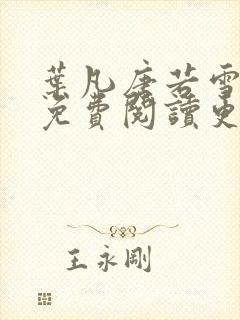 葉凡唐若雪
免費閱讀更
王永剛